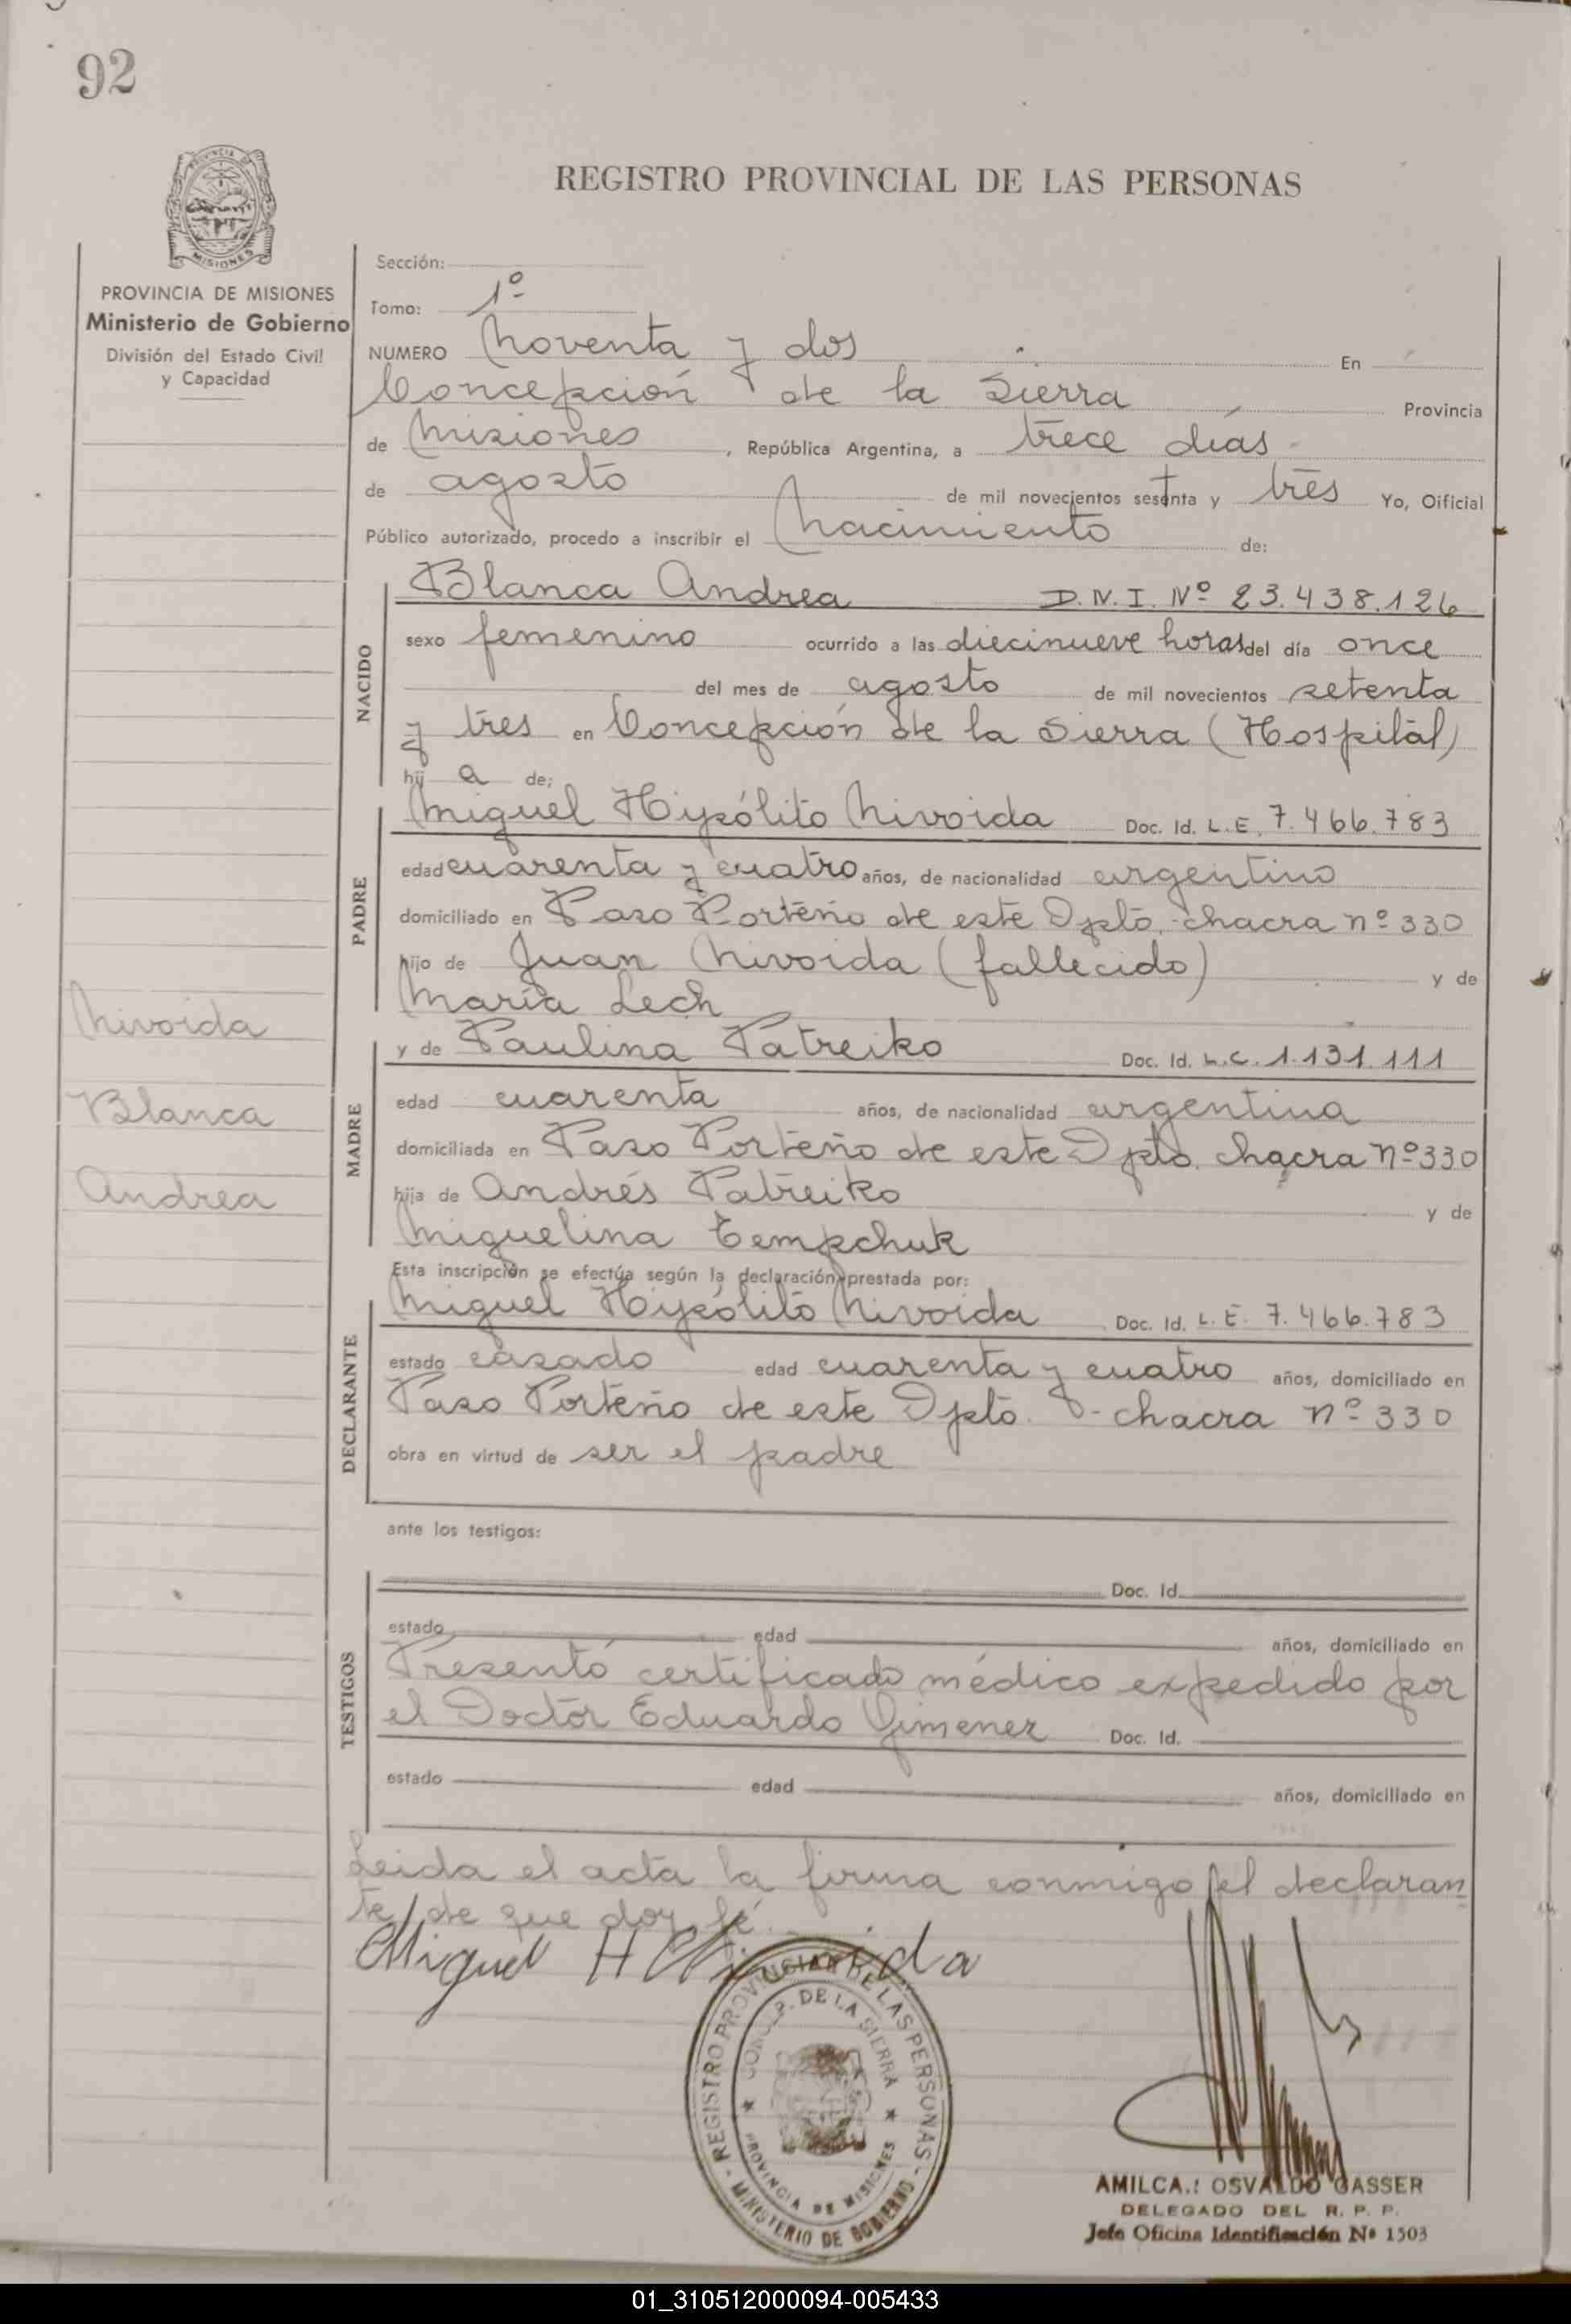 92
REGISTRO PROVINCIAL DE LAS PERSONAS
PROVINCIA DE MISIONES
Ministerio de Gobierno
División del Estado Civil
y Capacidad
Sección:
Tomo: 1º
NUMERO Noventa y dos En
Concepción de la Sierra Provincia
de Misiones, República Argentina, a trece días
de agosto de mil novecientos sesenta y tres Yo, Oificial
Público autorizado, procedo a inscribir el Nacimiento de:
NACIDO
Blanca Andrea D.N.I. Nº 23.438.126
sexo femenino ocurrido a las diecinueve horas del día once
del mes de agosto de mil novecientos setenta
y tres en Concepción de la Sierra (Hospital)
hij a de;
PADRE
Miguel Hipólito Nivoida Doc. Id. L.E. 7.466.783
edad cuarenta y cuatro años, de nacionalidad argentino
domiciliado en Paso Porteño de este Dpto. chacra nº 330
hijo de Juan Nivoida (fallecido) y de
María Lech
MADRE
y de Paulina Patreiko Doc. Id. L.C. 1.131.111
edad cuarenta años, de nacionalidad argentina
domiciliada en Paso Porteño de este Dpto. chacra nº 330
hija de Andrés Patreiko y de
Miguelina Tempchuk
Esta inscripción se efectúa según la declaración prestada por:
DECLARANTE
Miguel Hipólito Nivoida Doc. Id. L.E. 7.466.783
estado casado edad cuarenta y cuatro años, domiciliado en
Paso Porteño de este Dpto. - chacra nº 330
obra en virtud de ser el padre
ante los testigos:
TESTIGOS
Doc. Id.
estado edad años, domiciliado en
Presentó certificado médico expedido por
el Doctor Eduardo Gimenez Doc. Id.
estado edad años, domiciliado en
Leida el acta la firma conmigo el declaran
te, de que doy fé.
Nivoida
Blanca
Andrea
Miguel H Nivoida
REGISTRO PROVINCIAL DE LAS PERSONAS - MINISTERIO DE GOBIERNO
CONCEP. DE LA SIERRA
PROVINCIA DE MISIONES
AMILCA.: OSVALDO GASSER
DELEGADO DEL R. P. P.
Jefe Oficina Identificación Nº 1503
01_310512000094-005433